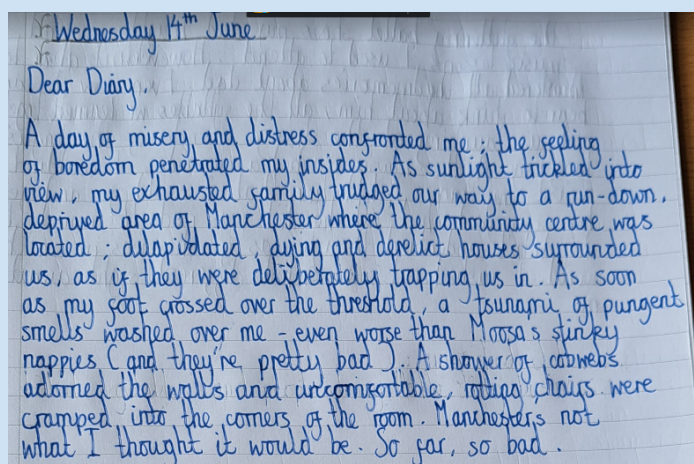 Wednesday 14th June
Dear Diary,
A day of misery and distress confronted me; the feeling
of boredom penetrated my insides. As sunlight trickled into
view, my exhausted family trudged our way to a run-down,
deprived area of Manchester where the community centre was
located; dilapidated, dying and derelict houses surrounded
us, as if they were deliberately trapping us in. As soon
as my foot crossed over the threshold, a tsunami of pungent
smells washed over me - even worse than Moosa's stinky
nappies (and they're pretty bad). A shower of cobwebs
adorned the walls and uncomfortable, rotting chairs were
cramped into the corners of the room. Manchester's not
what I thought it would be. So far, so bad.